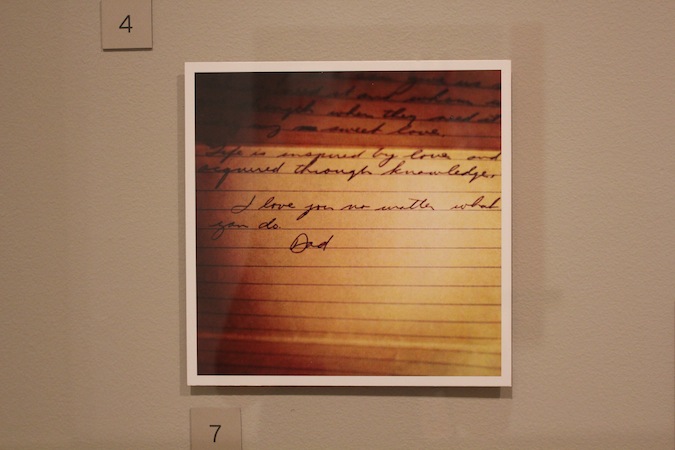 4
when they need it
sweet love.
Life is inspired by love and
acquired through knowledge.
I love you no matter what
you do.
Dad
7